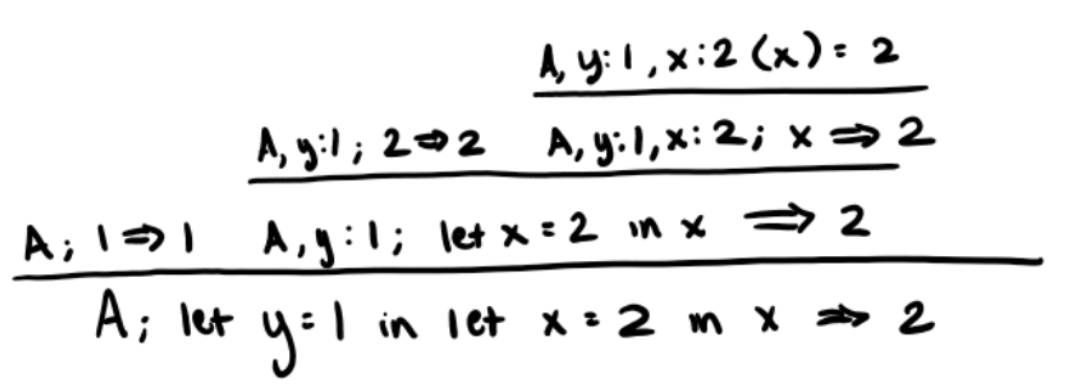 A, y:1, x:2 (x) = 2
A, y:1; 2 ⇒ 2 A, y:1, x:2; x ⇒ 2
A; 1 ⇒ 1 A, y:1; let x = 2 in x ⇒ 2
A; let y = 1 in let x = 2 in x ⇒ 2